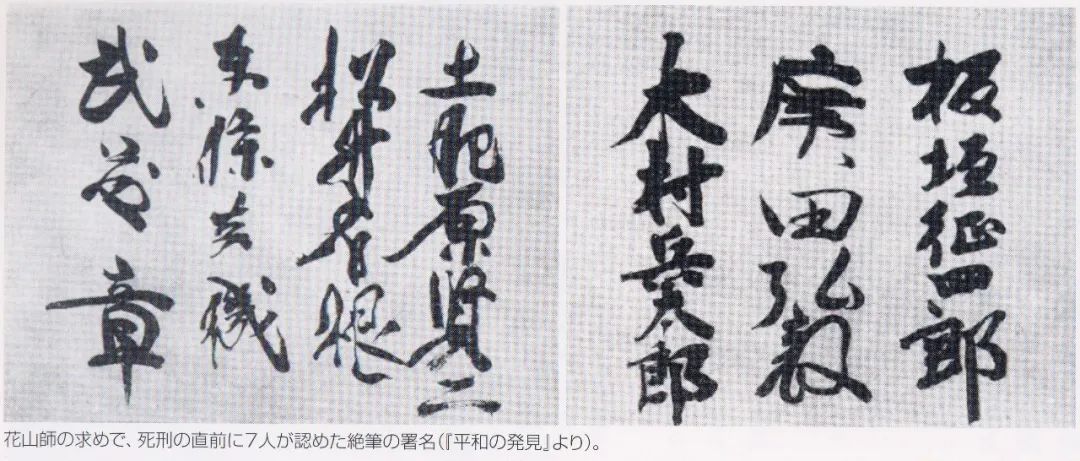 板垣征四郎
廣田弘毅
木村兵太郎
土肥原賢二
松井石根
東條英機
武藤章
花山師の求めで、死刑の直前に7人が認めた絶筆の署名(『平和の発見』より)。